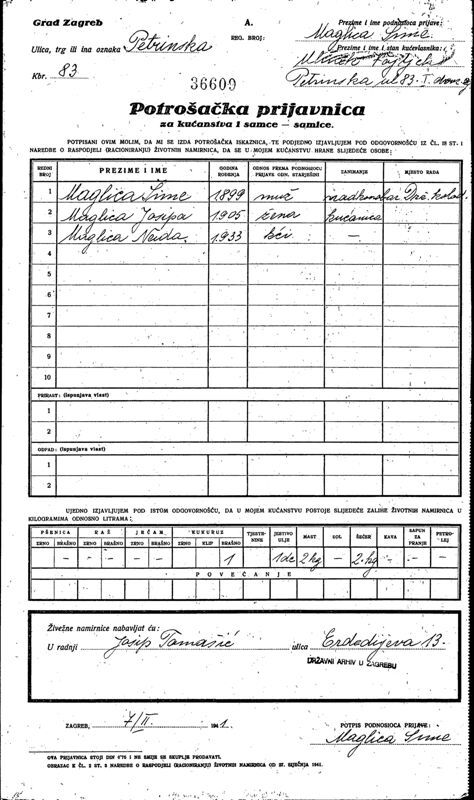 Grad Zagreb
A.
Prezime i ime podnosioca prijave:
REG. BROJ:
Maglica Sime
Ulica, trg ili ina oznaka Petrinska
Prezime i ime i stan kućevlasnika:
Kbr. 83
Petrinska ul 83. I.
36609
Potrošačka prijavnica
za kućanstva i samce — samice.
POTPISANI OVIM MOLIM, DA MI SE IZDA POTROŠAČKA ISKAZNICA, TE PODJEDNO IZJAVLJUJEM POD ODGOVORNOŠĆU IZ ČL. 18 ST. I
NAREDBE O RASPODJELI (RACIONIRANJU) ŽIVOTNIH NAMIRNICA, DA SE U MOJEM KUĆANSTVU HRANE SLIJEDEĆE OSOBE:
REDNI BROJ PREZIME I IME GODINA ROĐENJA ODNOS PREMA PODNOSIOCU PRIJAVE ODN. STARJEŠINI ZANIMANJE MJESTO RADA
1 Maglica Sime 1899 muž nadkonobar Drž. kolod.
2 Maglica Josipa 1905 žena kućanica
3 Maglica Neda 1933 kći —
4
5
6
7
8
9
10
PRIRAST: (Ispunjava vlast)
1
2
OTPAD: (Ispunjava vlast)
1
2
UJEDNO IZJAVLJUJEM POD ISTOM ODGOVORNOŠĆU, DA U MOJEM KUĆANSTVU POSTOJE SLIJEDEĆE ZALIHE ŽIVOTNIH NAMIRNICA U
KILOGRAMIMA ODNOSNO LITRAMA:
PŠENICA RAŽ JEČAM KUKURUZ TJESTENINE JESTIVO ULJE MAST SOL ŠEĆER KAVA SAPUN ZA PRANJE PETROLEJ
ZRNO BRAŠNO ZRNO BRAŠNO ZRNO BRAŠNO ZRNO KLIP BRAŠNO
— — — — — — — — 1 — 1 dc 2 kg — 2 kg — — —
POVEĆANJE
Živežne namirnice nabavljat ću:
U radnji Josip Tomašić ulica Erdedijeva 13.
DRŽAVNI ARHIV U ZAGREBU
ZAGREB, 7/II. 1941.
POTPIS PODNOSIOCA PRIJAVE:
Maglica Sime
OVA PRIJAVNICA STOJI DIN 0'75 I NE SMIJE SE SKUPLJE PRODAVATI.
OBRAZAC K ČL. 2 ST. 3 NAREDBE O RASPODJELI (RACIONIRANJU) ŽIVOTNIH NAMIRNICA OD 27. SIJEČNJA 1941.